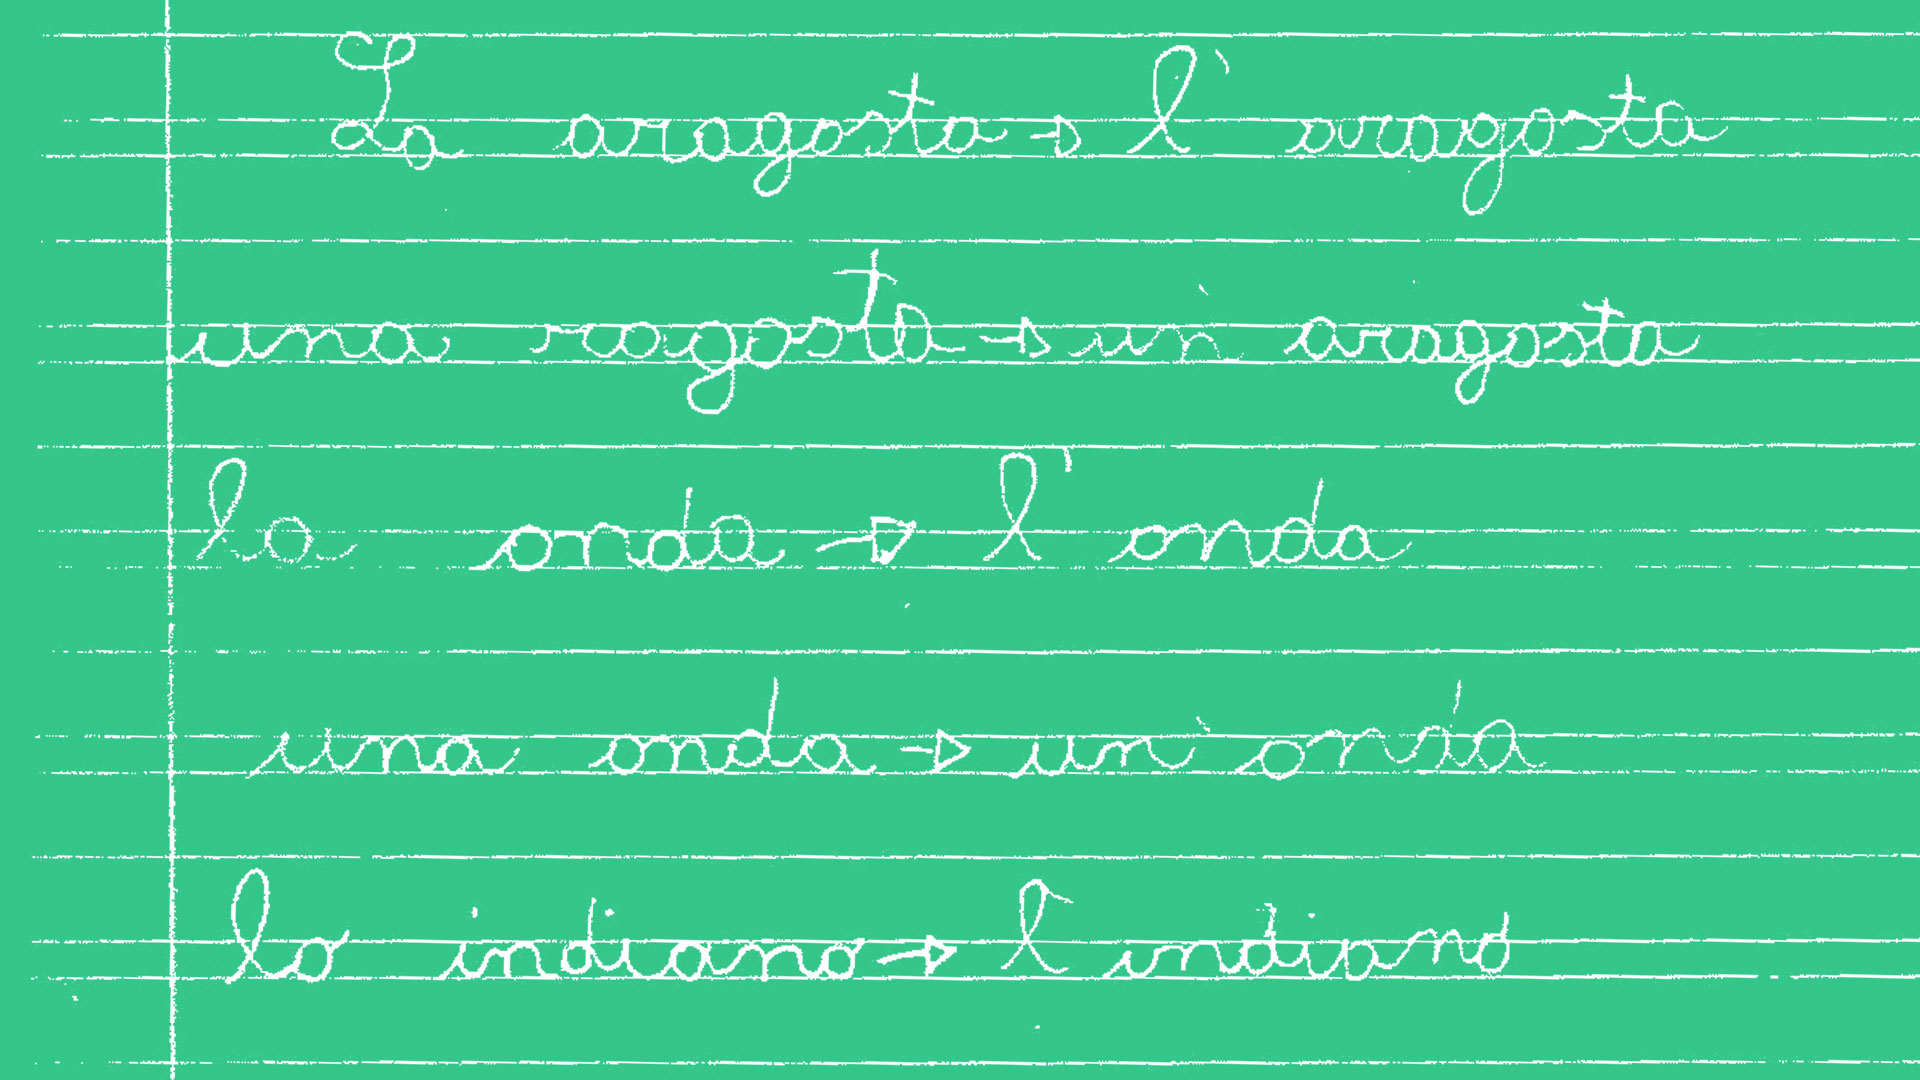 La aragosta → l'aragosta
una ragosta → un'aragosta
la onda → l'onda
una onda → un'onda
lo indiano → l'indiano